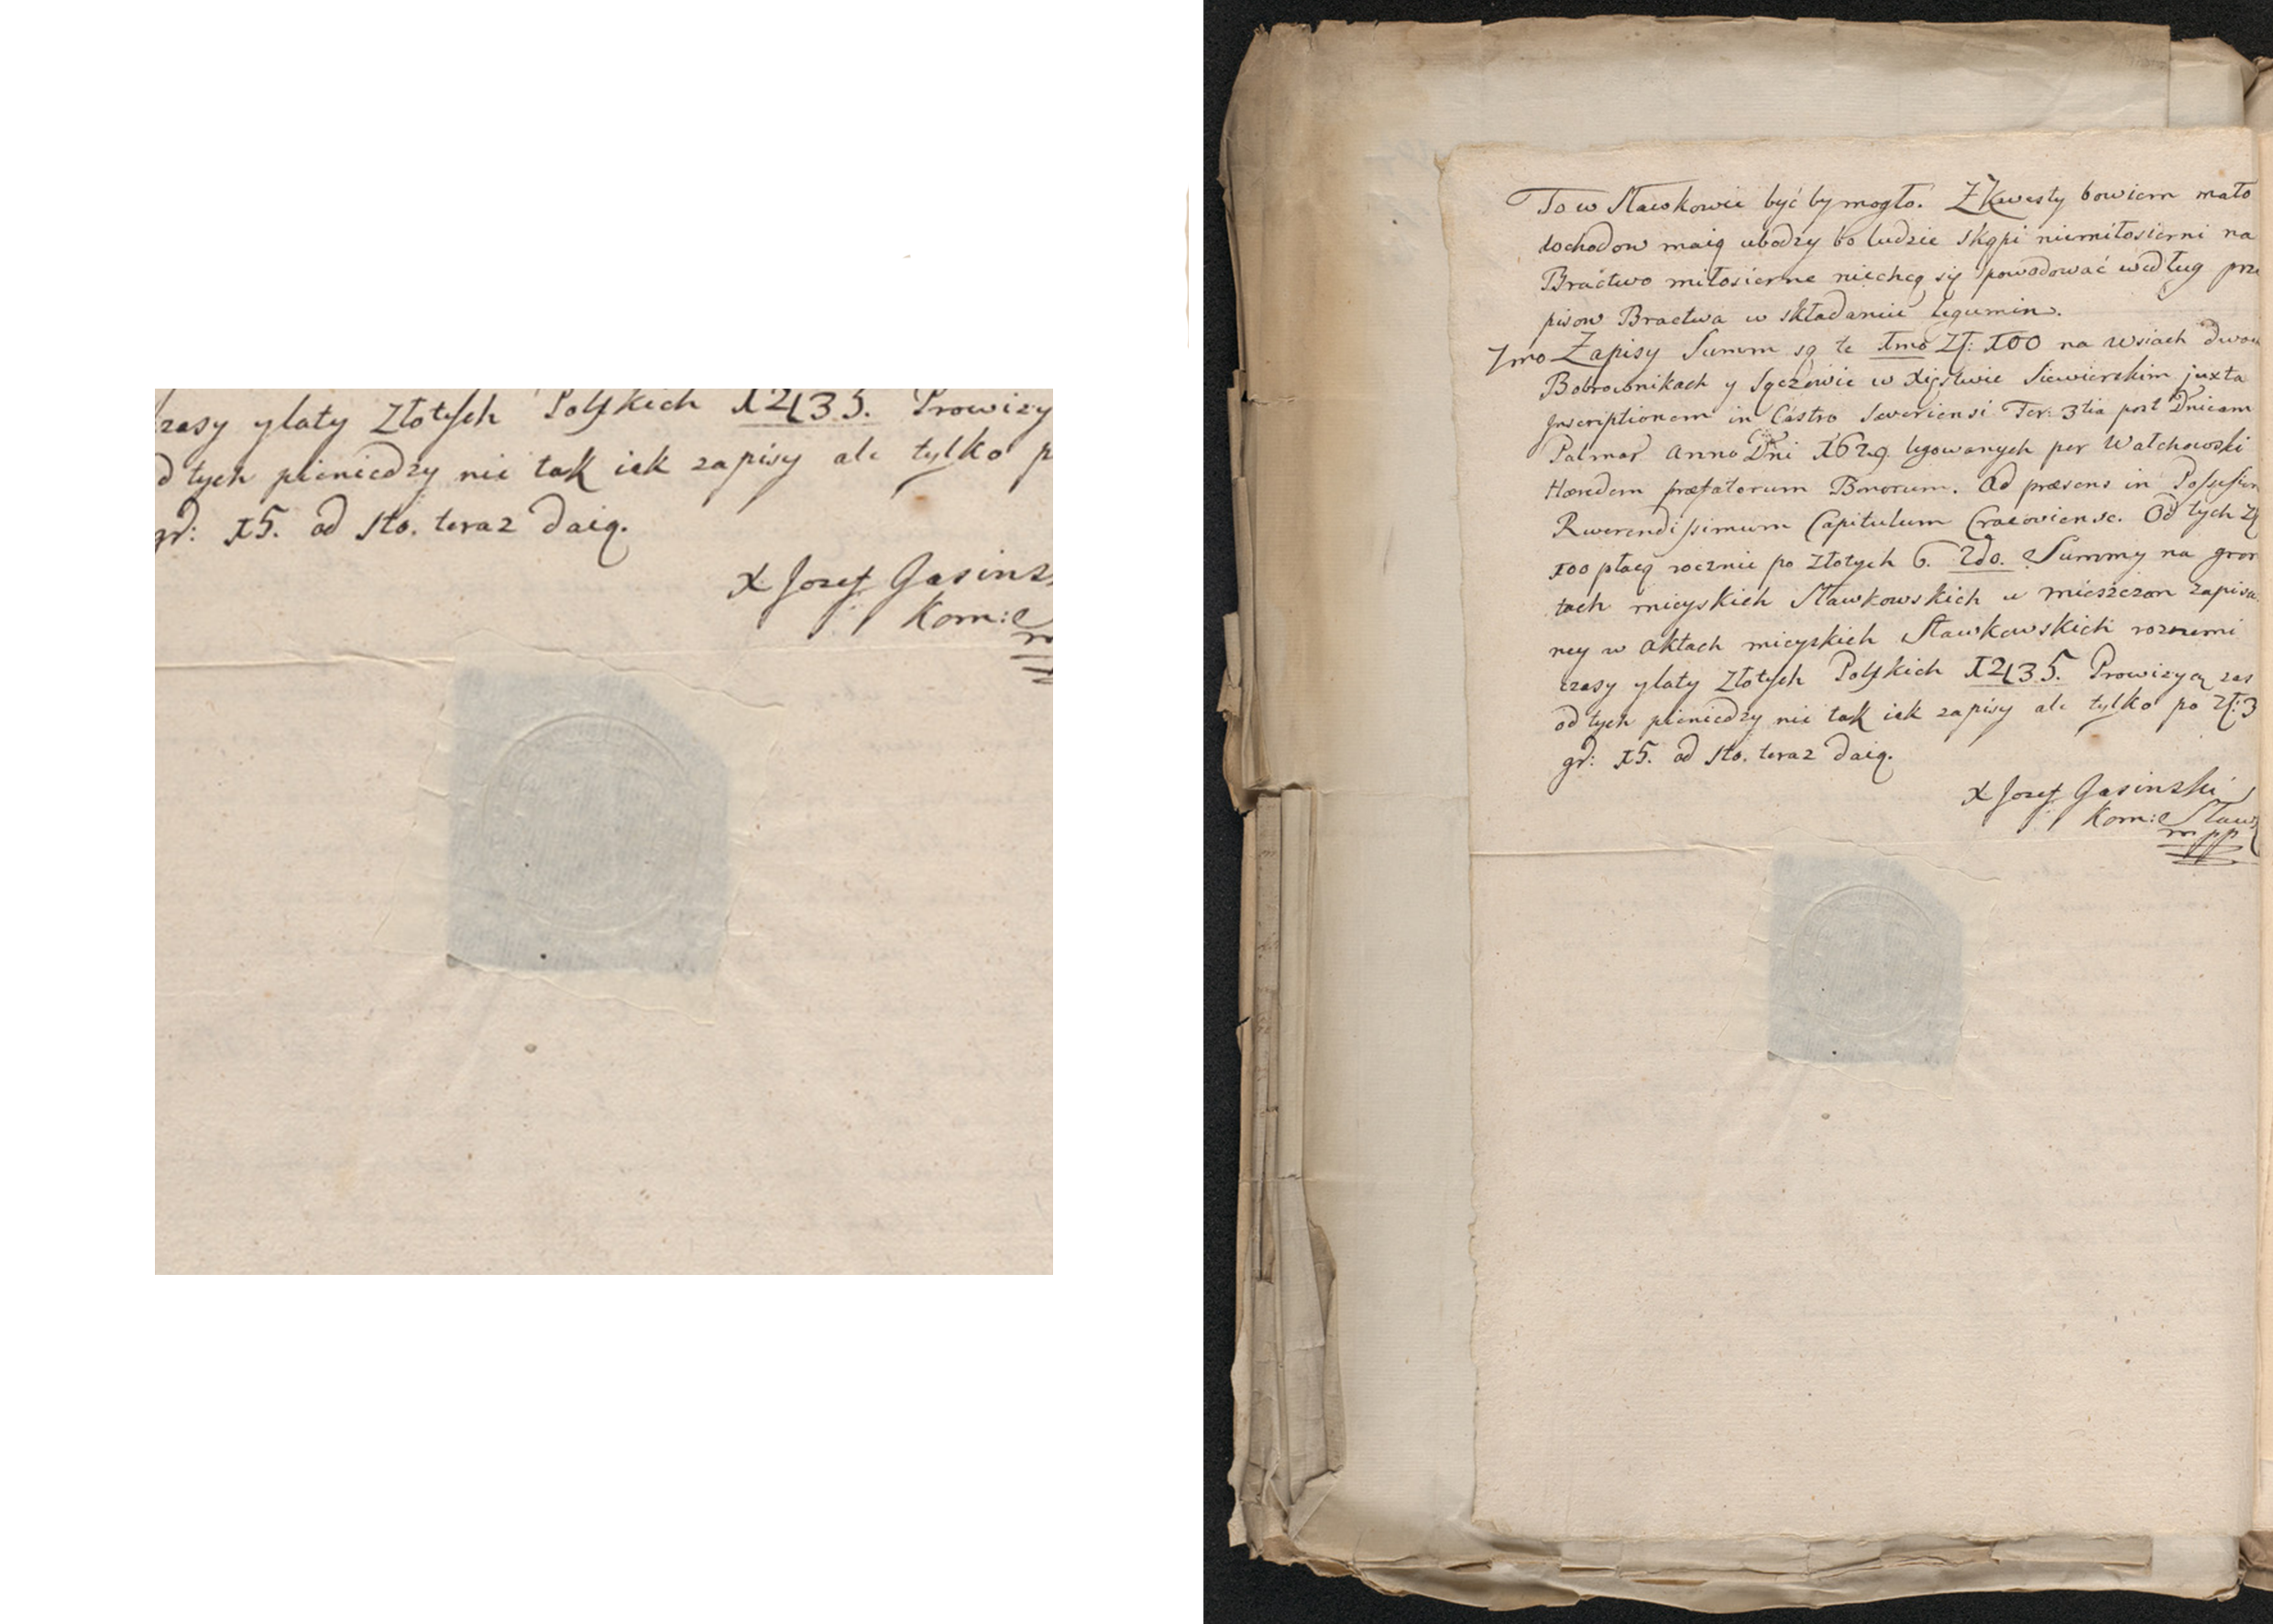 rasy ylaty Złotych Polskich 12435. Prowizy
d tych pieniedzy nie tak iak zapisy ale tylko p
gr: 15. od sto. teraz daią.
X Jozef Gasins
Kom:
To w Sławkowie być by mogło. Z Kwesty bowiem mało
dochodow maią ubodzy bo ludzie skąpi niemiłosierni na
Bractwo miłosierne niechcą się powodować według prze
pisow Bractwa w składaniu legumin.
7mo Zapisy Summ są te 1mo Zł: 100 na wsiach dwoch
Bobrownikach y Sączowie w Xięstwie Siewierskim juxta
Inscriptionem in Castro Severiensi Fer: 3tia post Dnicam
Palmar Anno Dni 1629 legowanych per Walchowski
Hæredem præfatorum Bonorum. Ad præsens in Possession
Reverendissimum Capitulum Cracoviense. Od tych Zł
100 płacą rocznie po Złotych 6. 2do. Summy na grun
tach mieyskich Sławkowskich u mieszczan zapisa
ney w Aktach mieyskich Sławkowskich roznemi
czasy ylaty Złotych Polskich 12435. Prowizyą zas
od tych pieniedzy nie tak iak zapisy ale tylko po Zł: 3
gr: 15. od sto. teraz daią.
X Jozef Gasinski
Kom: Sław
mpp